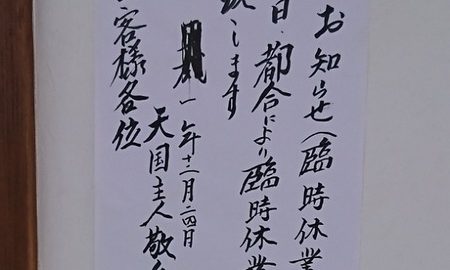 お知らせ(臨時休業
日・都合により臨時休業
致します
一年十二月二四日
天国主人敬
客様各位